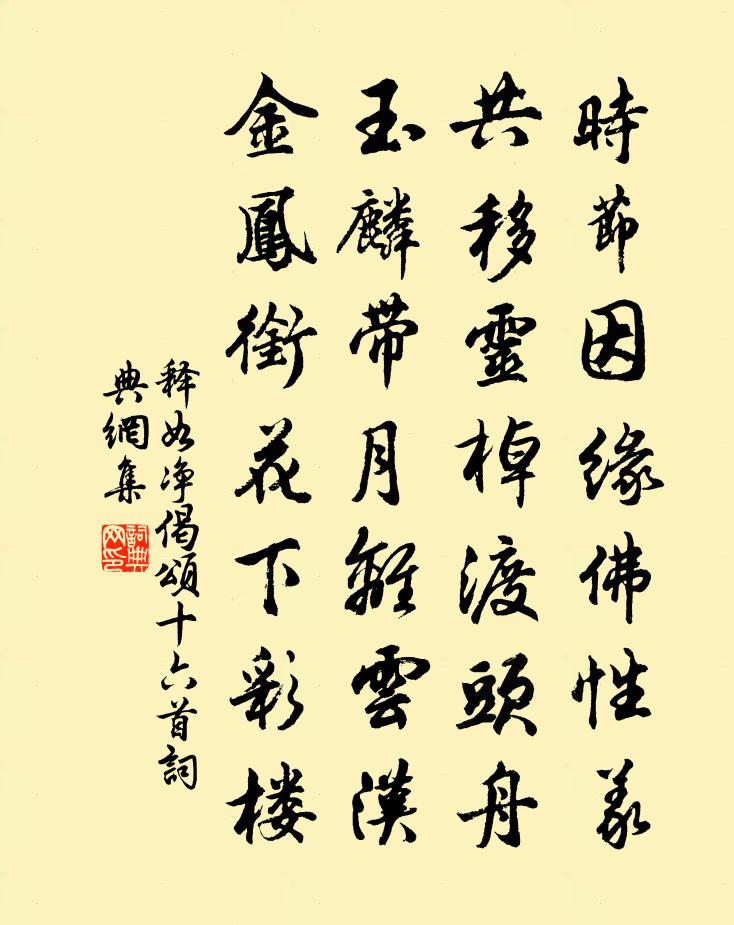 時節因緣佛性義
共移靈棹渡頭舟
玉麟带月離雲漢
金鳳銜花下彩楼
释如净偈頌十六首詞
典網集
詞典
网印